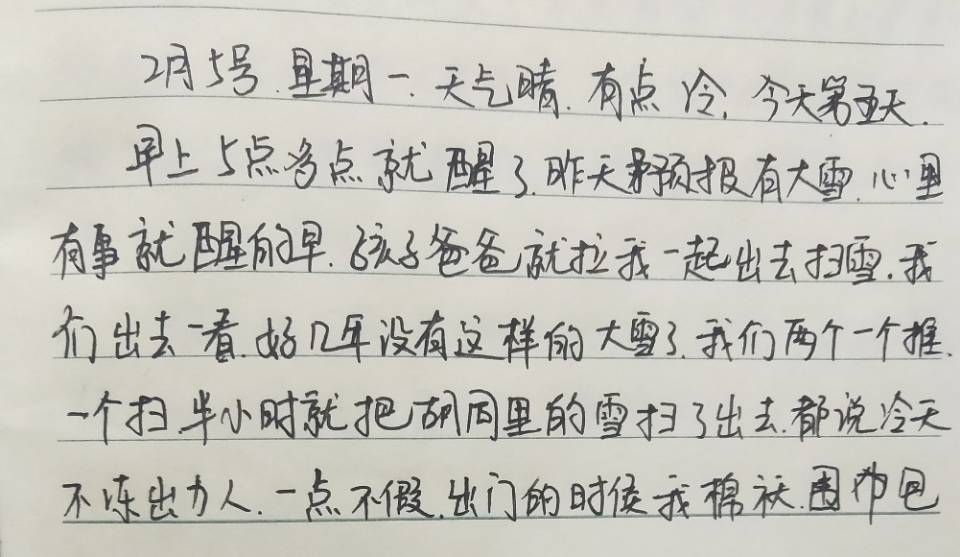 2月5号.星期一.天气晴.有点冷.今天第五天.
早上5点多点就醒了.昨天预报有大雪.心里
有事就醒的早.孩子爸爸就拉我一起出去扫雪.我
们出去一看.好几年没有这样的大雪了.我们两个一个推.
一个扫.半小时就把胡同里的雪扫了出去.都说冷天
不冻出力人.一点不假.出门的时候我棉袄.围巾包